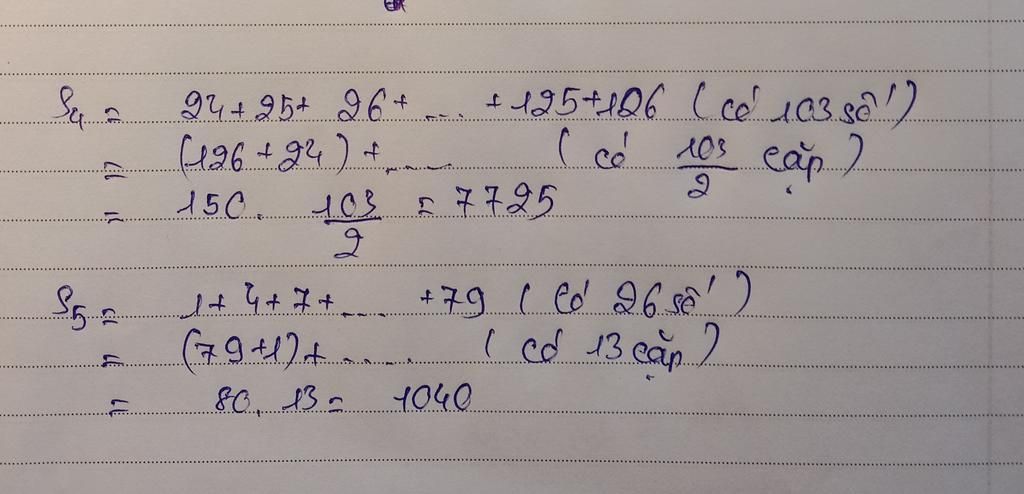 S₄ = 24+25+ 26+ .... +125+126 (có 103 số)
= (126+24) + ..... (có 103/2 cặp)
= 150. 103/2 = 7725
S₅ = 1+4+7+ .... +79 (có 26 số)
= (79+1)+ ..... (có 13 cặp)
= 80. 13 = 1040